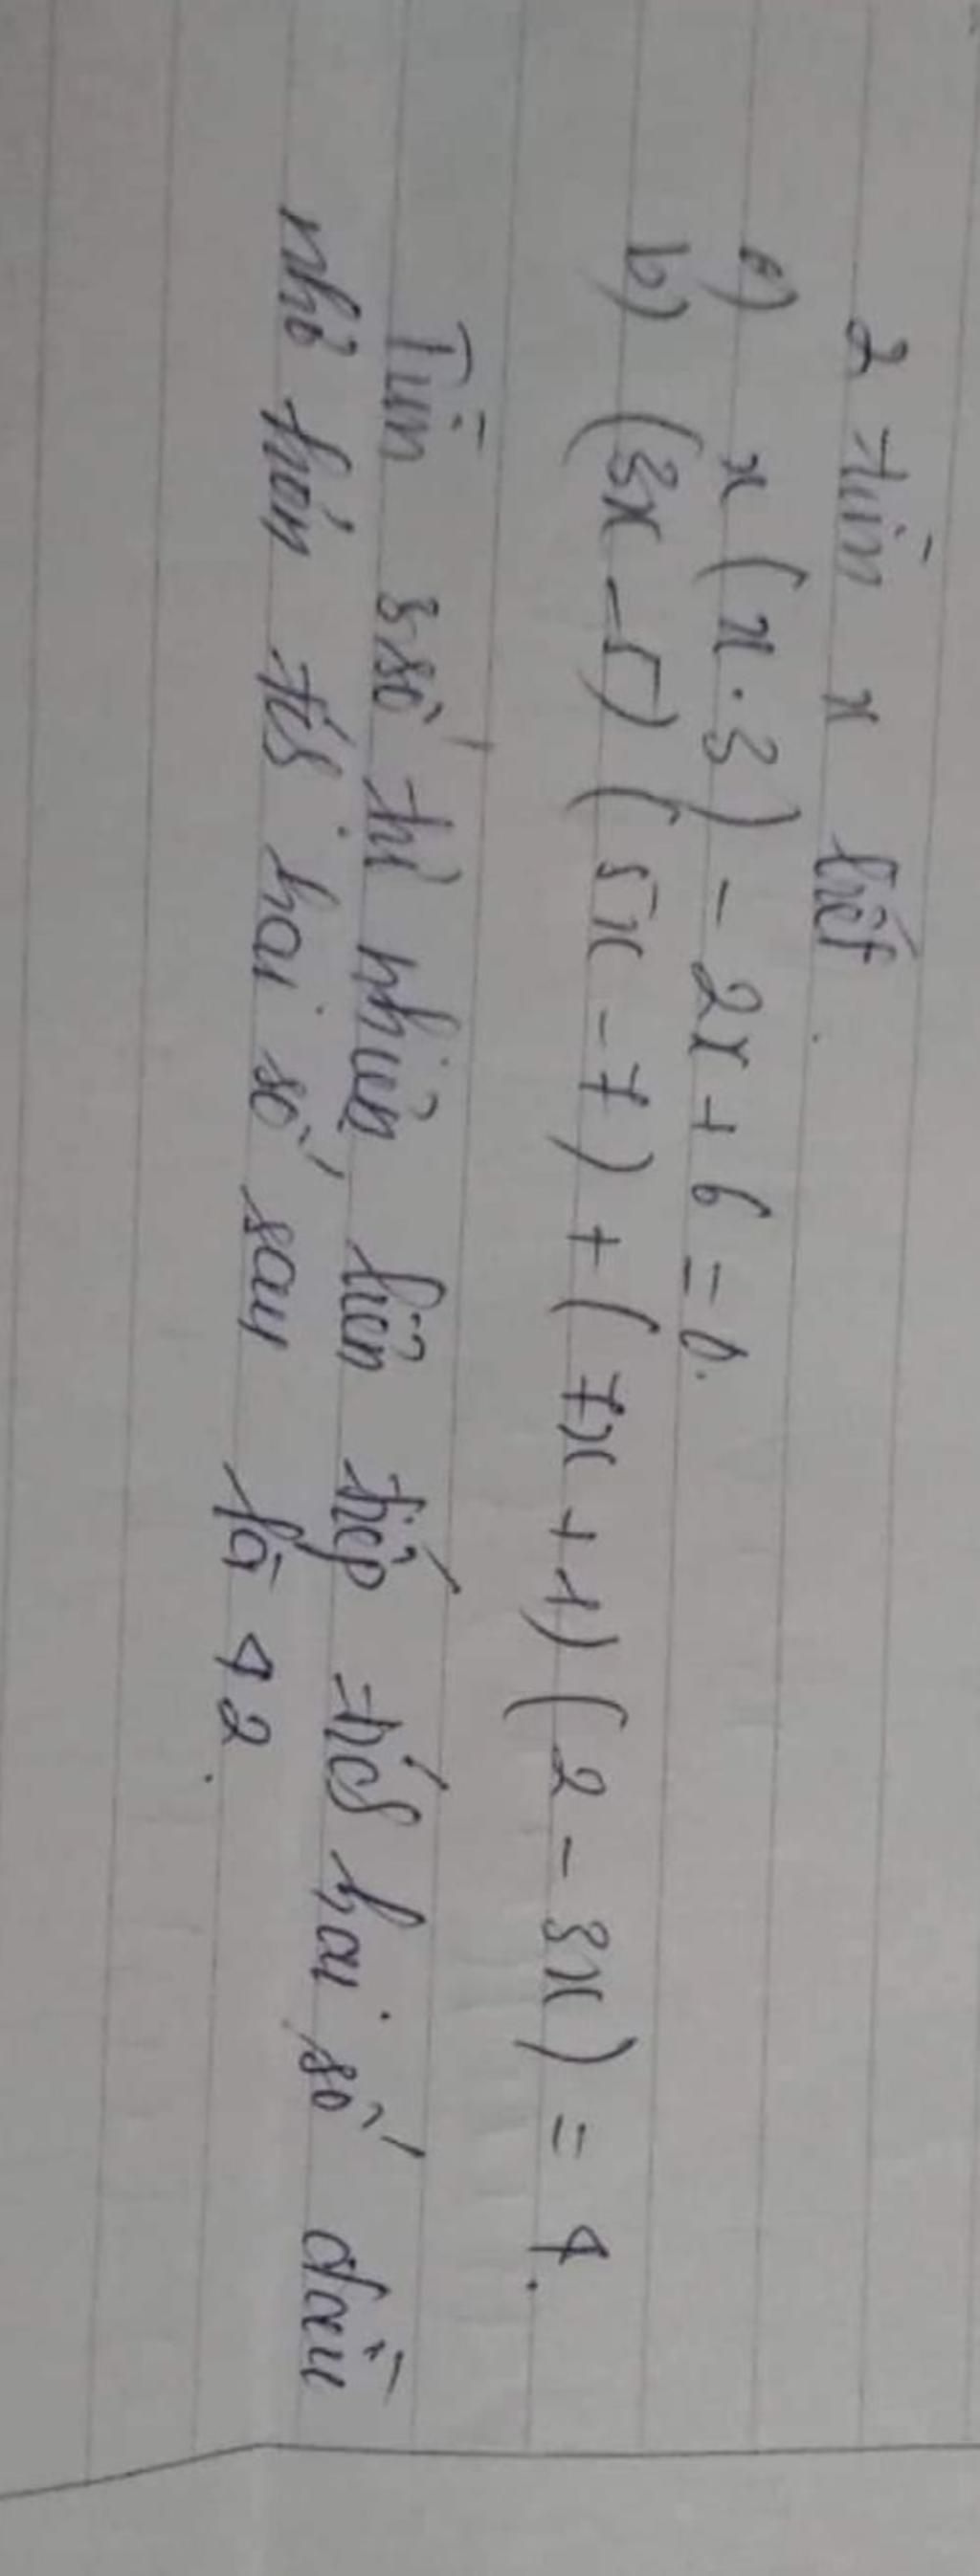 2 tìm x biết
a) x (x . 3) - 2x + 6 = 0.
b) (3x - 5) (5x - 7) + (7x + 1) (2 - 3x) = 4.
Tìm 3 số tự nhiên liên tiếp tích hai số đầu
nhỏ hơn tích hai số sau là 42.